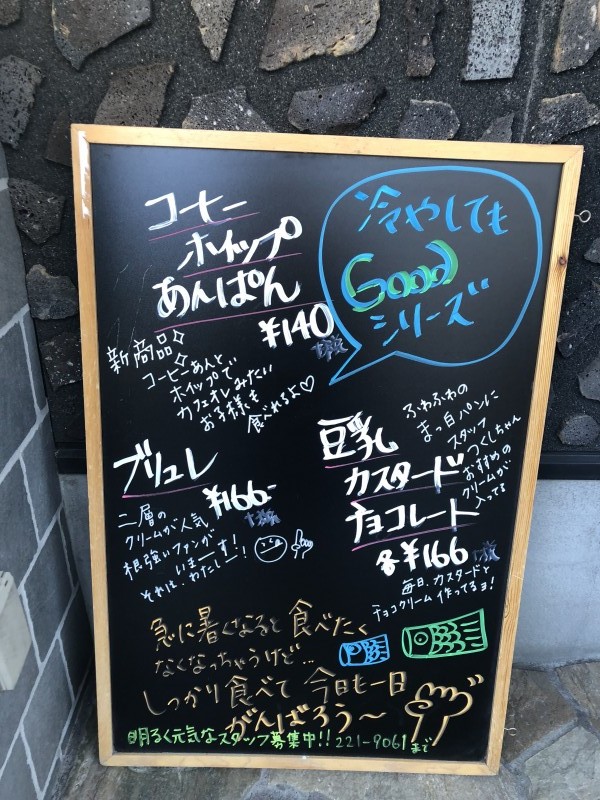 コーヒー
ホイップ
あんぱん
¥140
冷やしても
Good
シリーズ
新商品
コーヒーあんと
ホイップで
カフェオレみたい
お子様も
食べれるよ♡
ブリュレ
¥166-
二層の
クリームが人気
根強いファンが
いまーす!
それは、わたしー!
豆乳
カスタード
チョコレート
各¥166
ふわふわの
まっ白パンに
スタッフ
つくしちゃん
おすすめの
クリームが
入ってる
毎日、カスタードと
チョコクリーム作ってるョ!
急に暑くなると食べたく
なくなっちゃうけど…
しっかり食べて今日も一日
がんばろう〜
明るく元気なスタッフ募集中!! 221-9061まで